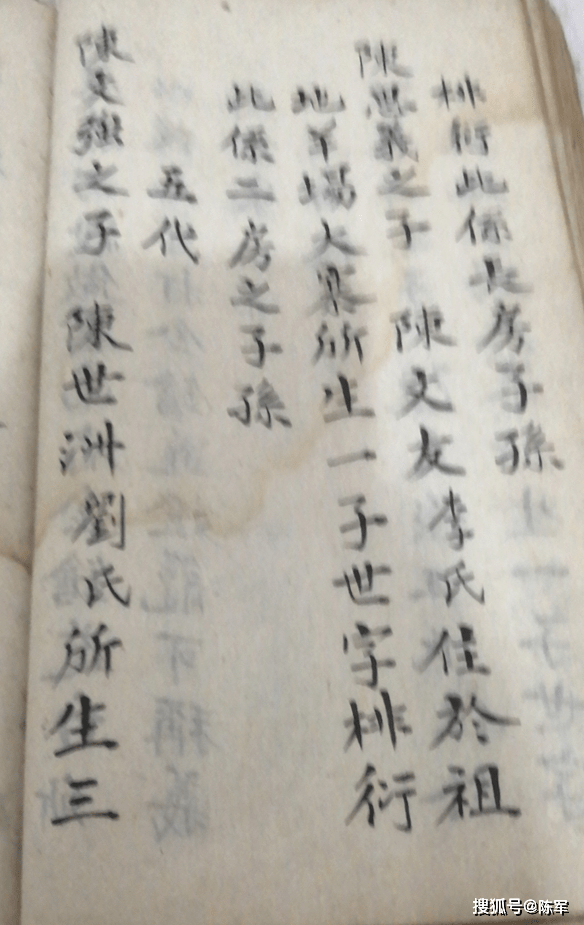 排衍此係長房子孫
陳思義之子 陳文友李氏住於祖
地羊塲大寨所生一子世字排衍
此係二房之子孫
五代
陳文強之子 陳世洲劉氏所生三
搜狐号@陈军